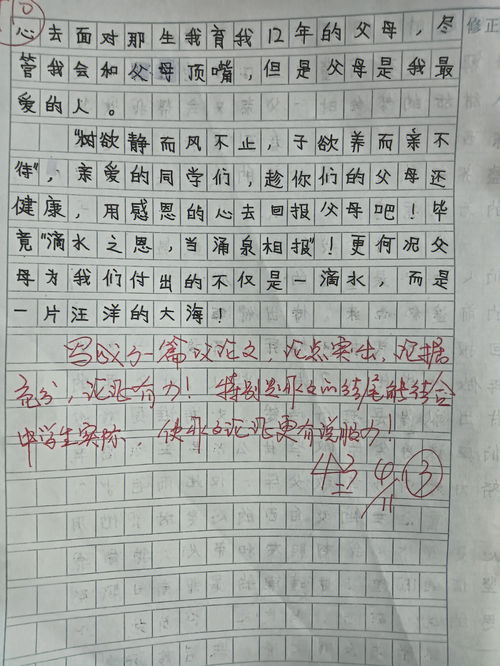 10
心去面对那生我育我12年的父母，尽
管我会和父母顶嘴，但是父母是我最
爱的人。
"树欲静而风不止，子欲养而亲不
待"，亲爱的同学们，趁你们的父母还
健康，用感恩的心去回报父母吧！毕
竟"滴水之恩，当涌泉相报"！更何况父
母为我们付出的不仅是一滴水，而是
一片汪洋的大海！
写成了一篇议论文，论点突出，论据
充分，论证有力！特别是作文的结尾能结合
中学生实际，使作文论证更有说服力！
43 4/11 ③
修正